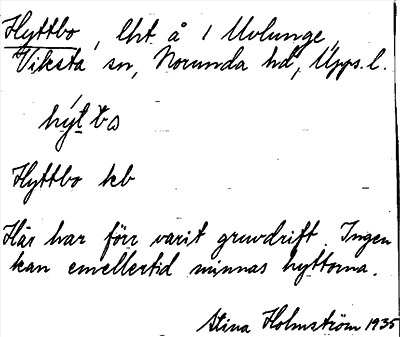 Hyttbo, lht å 1 Ulvlunge,
Viksta sn, Norunda hd, Upps. l.
Hyttbo kb
Här har förr varit gruvdrift. Ingen
kan emellertid minnas hyttorna.
Stina Holmström 1935